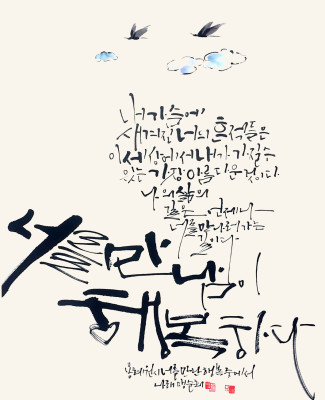 내 가슴에
새겨진 너의 흔적들은
이 세상에서 내가 가질 수
있는 가장 아름다운 것이다
나의 삶의
길은 언제나
너를 만나러 가는
길이다
만남이
행복하다
용혜원 시 너를 만난 행복 중에서